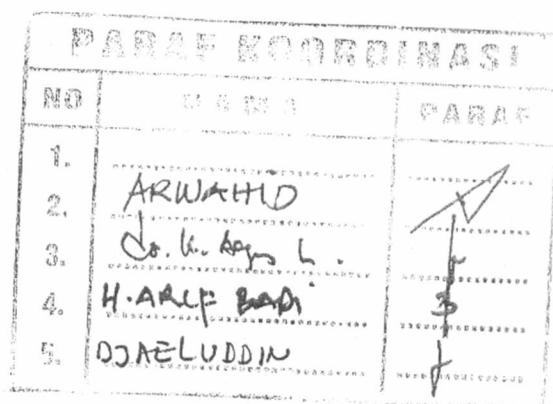 PARAF KOORDINASI
NO NAMA PARAF
1.
2. ARWAHID
3.
4. H. ARIF
5. DJAELUDDIN